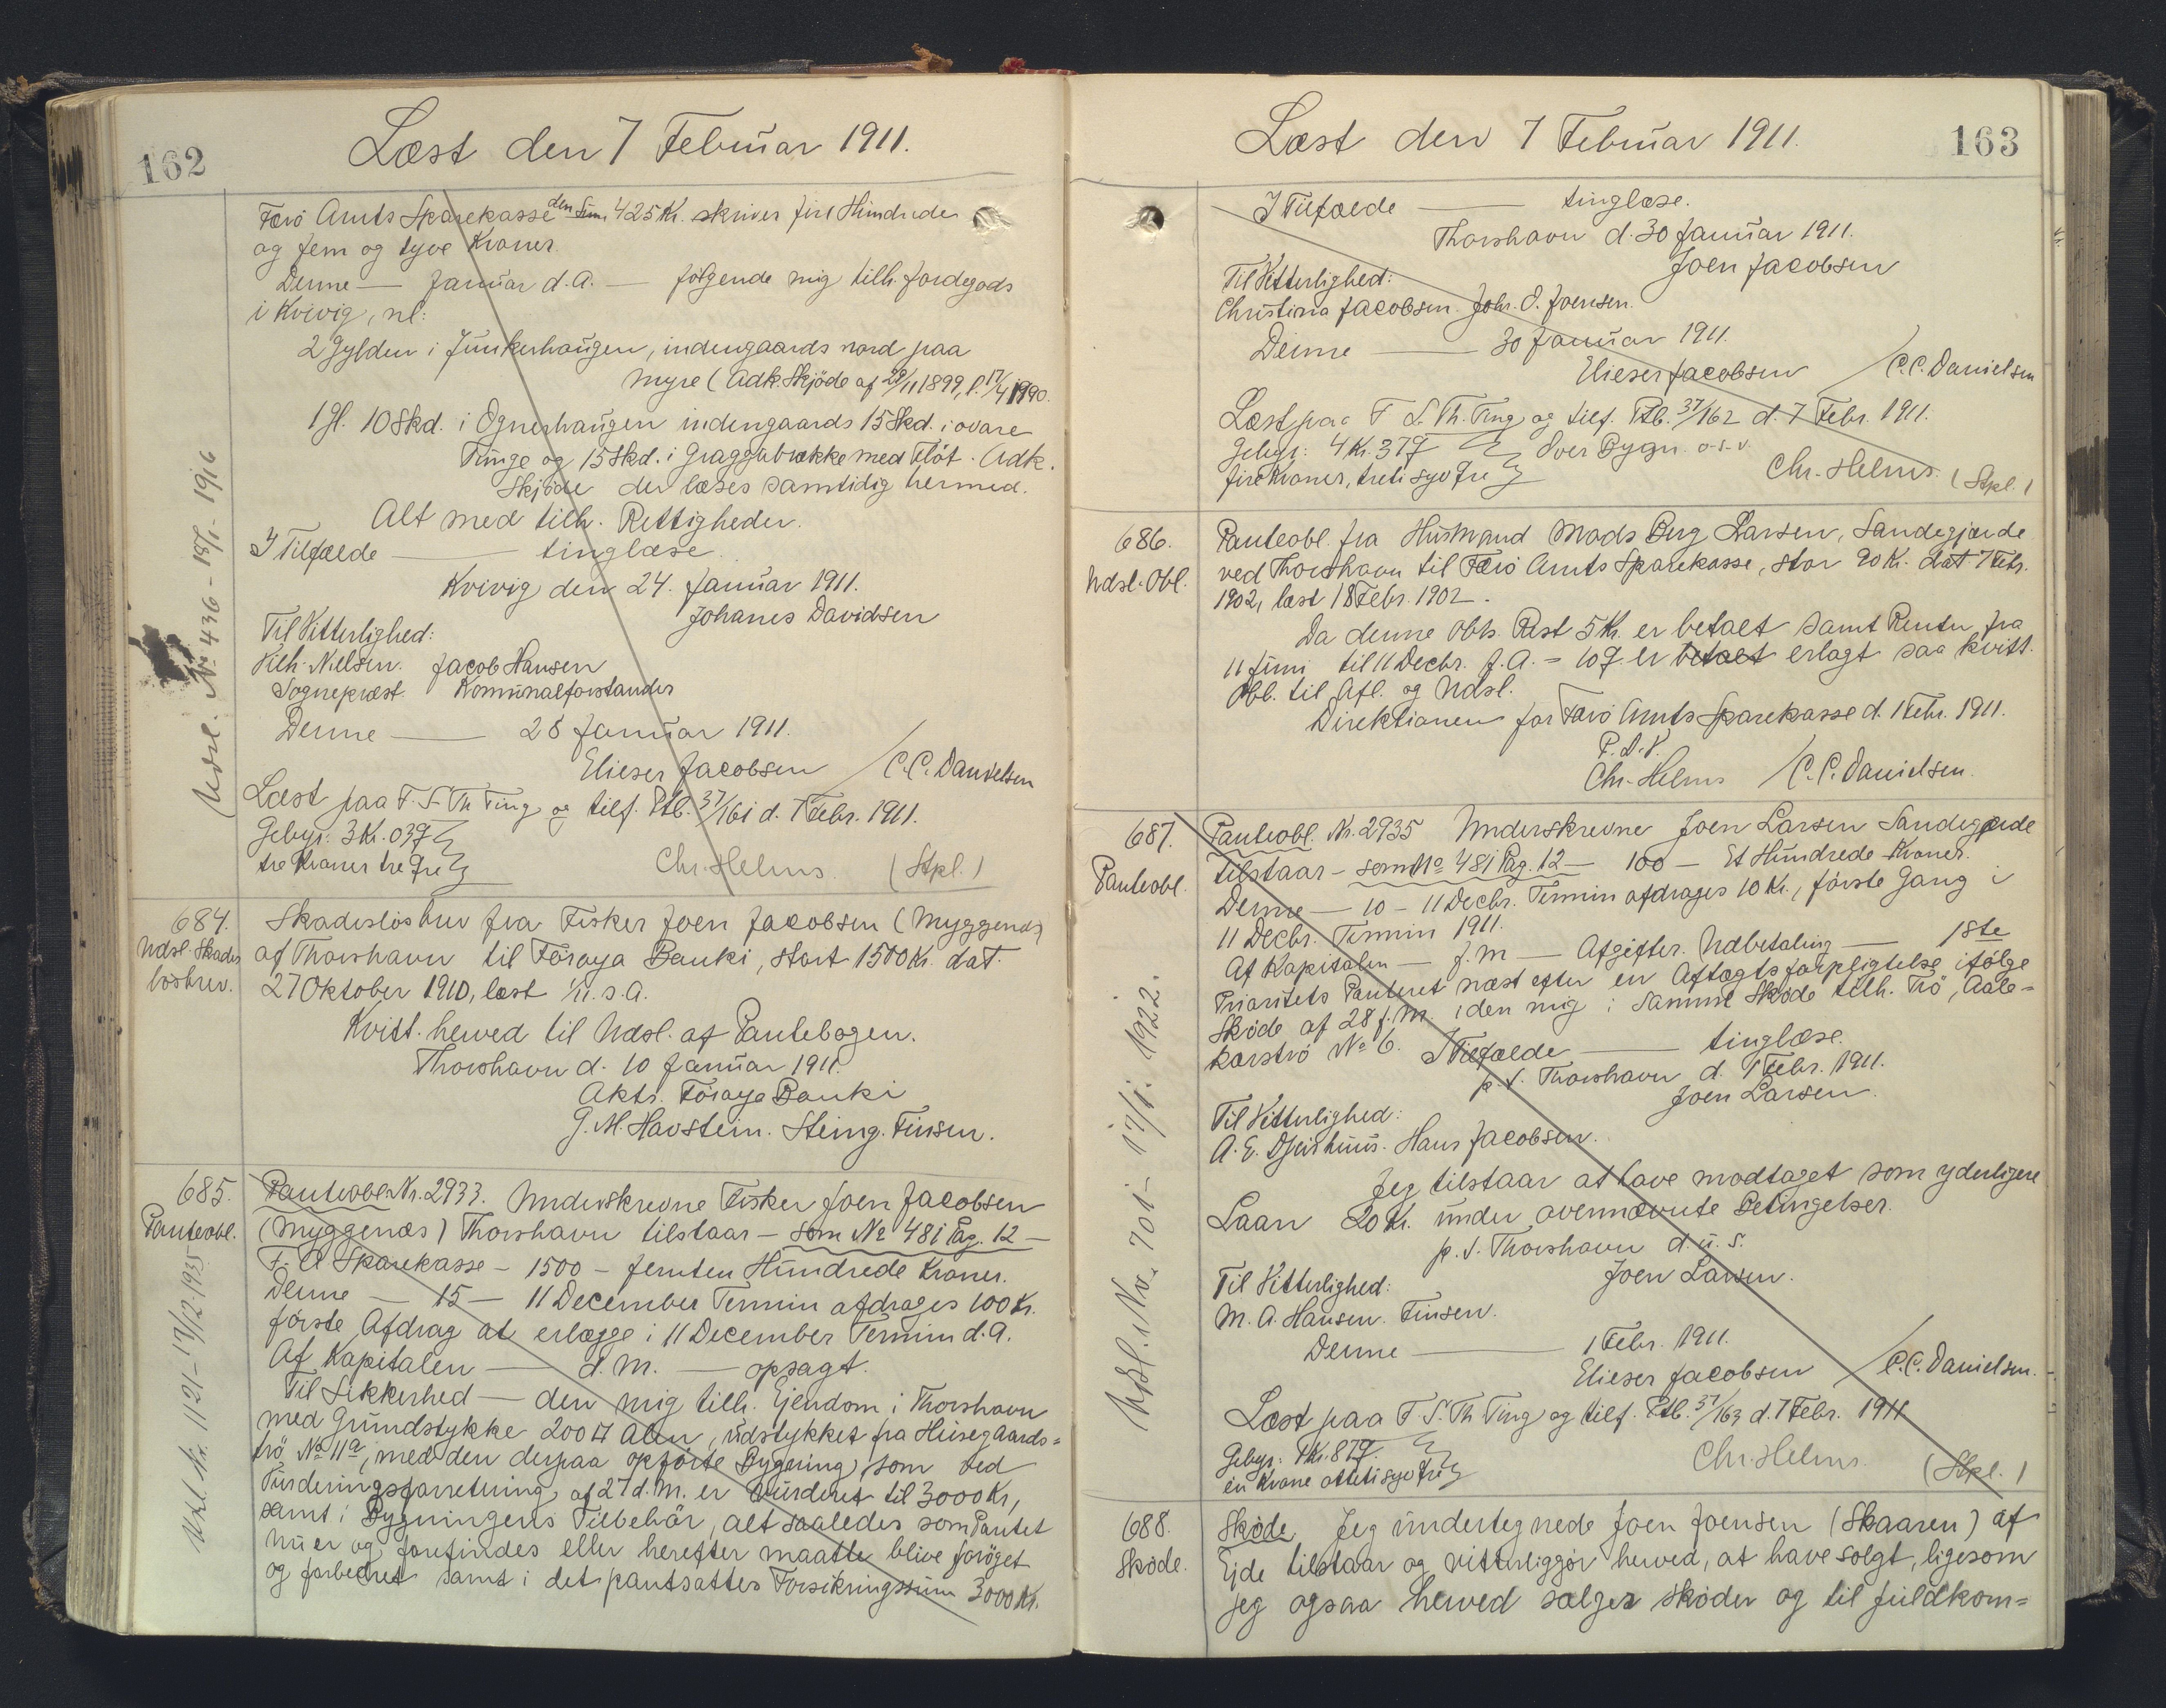 162
Læst den 7 Februar 1911.
Færö Amts Sparekasse den Sum 425 Kr. skriver fire Hundrede
og fem og tyve Kroner
Denne — Januar d.A. — følgende mig tilh. Jordegods
i Kvivig, nl:
2 Gylden i Junkerhaugen, indengaards nord paa
Myre (Adk. Skjöde af 28/11 1899, l. 17/4 1900.
1 gl. 10 Skd. i Ognerhaugen indengaards 15 Skd. i ovare
Tunge og 15 Skd. i Graggabrekke med Flöt. Adk.
Skjöde der læses samtidig hermed.
Alt med tilh. Rettigheder.
I Tilfælde — tinglæse.
Kvivig den 24. Januar 1911.
Johanes Davidsen
Til Vitterlighed:
Vilh. Nielsen. Jacob Hansen
Sognepræst. Kommunalforstander
Denne — 28 Januar 1911.
Elieser Jacobsen / C.C. Danielsen
Læst paa F. S. Th Ting og tilf. Ptb. 37/161 d. 7 Febr. 1911.
Gebyr: 3 Kr. 03 Ø
tre Kroner tre Øre
Chr. Helms. (Stpl.)
Udsl. No 436 - 18/1 - 1916
684.
Udsl. Skades
løsbrev.
Skadesløsbrev fra Fisker Joen Jacobsen (Myggenæs)
af Thorshavn til Föroya Banki, stort 1500 Kr. dat.
27 Oktober 1910, læst 1/11. s.A.
Kvitt. herved til Udsl. af Pantebogen.
Thorshavn d. 10 Januar 1911.
Akts. Föroya Banki
J. M. Havstein. Steing. Finsen.
685.
Panteobl.
Panteobl Nr. 2933. Underskrevne Fisker Joen Jacobsen
(Myggenæs) Thorshavn tilstaar — som No 481 Pag. 12 —
F. A Sparekasse — 1500 — femten Hundrede Kroner.
Denne — 15 — 11 December Termin afdrages 100 Kr.
første Afdrag at erlægge i 11 December Termin d.A.
Af Kapitalen — d.M. — opsagt.
Til Sikkerhed — den mig tilh. Ejendom i Thorshavn
med Grundstykke 200 □ Alen, udstykket fra Husegaards=
trö No 11a, med den derpaa opførte Bygning, som ved
Vurderingsforretning af 27 d.M. er vurderet til 3000 Kr,
samt i Bygningens Tilbehör, alt saaledes som Pantet
nu er og forefindes eller herefter maatte blive foröget
og forbedret samt i det pantsattes Forsikringssum 3000 Kr.
Udsl. Nr. 1121 - 17/12-1935
163
Læst den 7 Februar 1911.
I Tilfælde — tinglæse.
Thorshavn d. 30 Januar 1911.
Joen Jacobsen
Til Vitterlighed:
Christina Jacobsen. Johs. O. Joensen.
Denne — 30 Januar 1911.
Elieser Jacobsen / C.C. Danielsen
Læst paa F S. Th. Ting og tilf. Ptb. 37/162 d. 7 Febr. 1911.
Gebyr: 4 Kr. 37 Ø Over Bygn. o.s.v
fire Kroner, treti syv Øre
Chr. Helms. (Stpl.)
686.
Udsl. Obl.
Panteobl. fra Husmand Mads Berg Larsen, Sandegjærde
ved Thorshavn til Færö Amts Sparekasse, stor 90 Kr. dat 7 Febr.
1902, læst 18 Febr. 1902.
Da denne Obls. Rest 5 Kr. er betalt samt Renter fra
11 Juni til 11 Decbr. f.A. = 10 Ø er betalt erlagt saa kvitt.
Obl. til Afl. og Udsl.
Direktionen for Færö Amts Sparekasse d. 1 Febr. 1911.
P. D. V.
Chr. Helms / C. C. Danielsen.
687.
Panteobl.
Panteobl. Nr. 2935 Underskrevne Joen Larsen Sandegærde
tilstaar — som No 481 Pag. 12 — 100 — Et Hundrede Kroner.
Denne — 10 — 11 Decbr. Termin afdrages 10 Kr., første Gang i
11 Decbr. Termin 1911.
Af Kapitalen — f.M — Afgifter. Udbetaling — 1ste
Prioritets Panteret næst efter en Aftægtsforpligtelse ifölge
Skøde af 28 f.M. i den mig i samme Skøde tilh. Trö, Aale=
karströ No 6. I Tilfælde — tinglæse.
p.t. Thorshavn d. 1 Febr. 1911.
Joen Larsen.
Til Vitterlighed:
A. E. Djurhuus. Hans Jacobsen.
Jeg tilstaar at have modtaget som yderligere
Laan 20 Kr. under ovennævnte Betingelser.
p.t. Thorshavn d.u.s.
Joen Larsen.
Til Vitterlighed:
M. A. Hansen. Finsen.
Denne — 1 Febr. 1911.
Elieser Jacobsen / C.C. Danielsen.
Læst paa F. S. Th Ting og tilf. Ptb. 37/163 d. 7 Febr. 1911
Gebyr: 1 Kr. 87 Ø.
en Krone ottetisyv Øre
Chr. Helms. (Stpl.)
Udsl. Nr. 701 - 17/1. 1922.
688.
Skøde.
Skøde. Jeg undertegnede Joen Joensen (Skaaren) af
Ejde tilstaar og vitterliggør herved, at have solgt, ligesom
jeg ogsaa herved sælger skøder og til fuldkom=